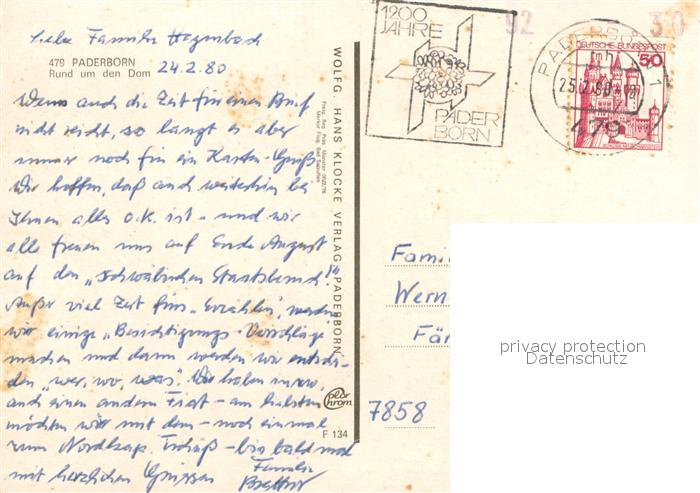 Liebe Familie Hagenbach
479 PADERBORN
Rund um den Dom
24.2.80
Wenn auch die Zeit für einen Brief
nicht reicht, so langt es aber
immer noch für ein Karten-Gruß
Wir hoffen, daß auch weiterhin bei
Ihnen alles o.k. ist - und wir
alle freuen uns auf Ende August
auf den "schwäbischen Staatsbesuch!"
Außer viel Zeit fürs "Erzählen", werden
wir einige "Besichtigungs-Vorschläge
machen und dann werden wir entschei-
den "wer, wo, was". Wir haben
auch einen andern Fiat - am liebsten
möchten wir mit dem - noch einmal
zum Nordkap. Tschüß - bis bald mal
mit herzlichen Grüssen Familie
WOLFG. HANS KLOCKE VERLAG PADERBORN
color chrom
F 134
1200
JAHRE
PADER
BORN
92
30
PADERBORN 1
25.2.80
479
DEUTSCHE BUNDESPOST
50
Famil
Wern
Fär
7858
privacy protection
Datenschutz